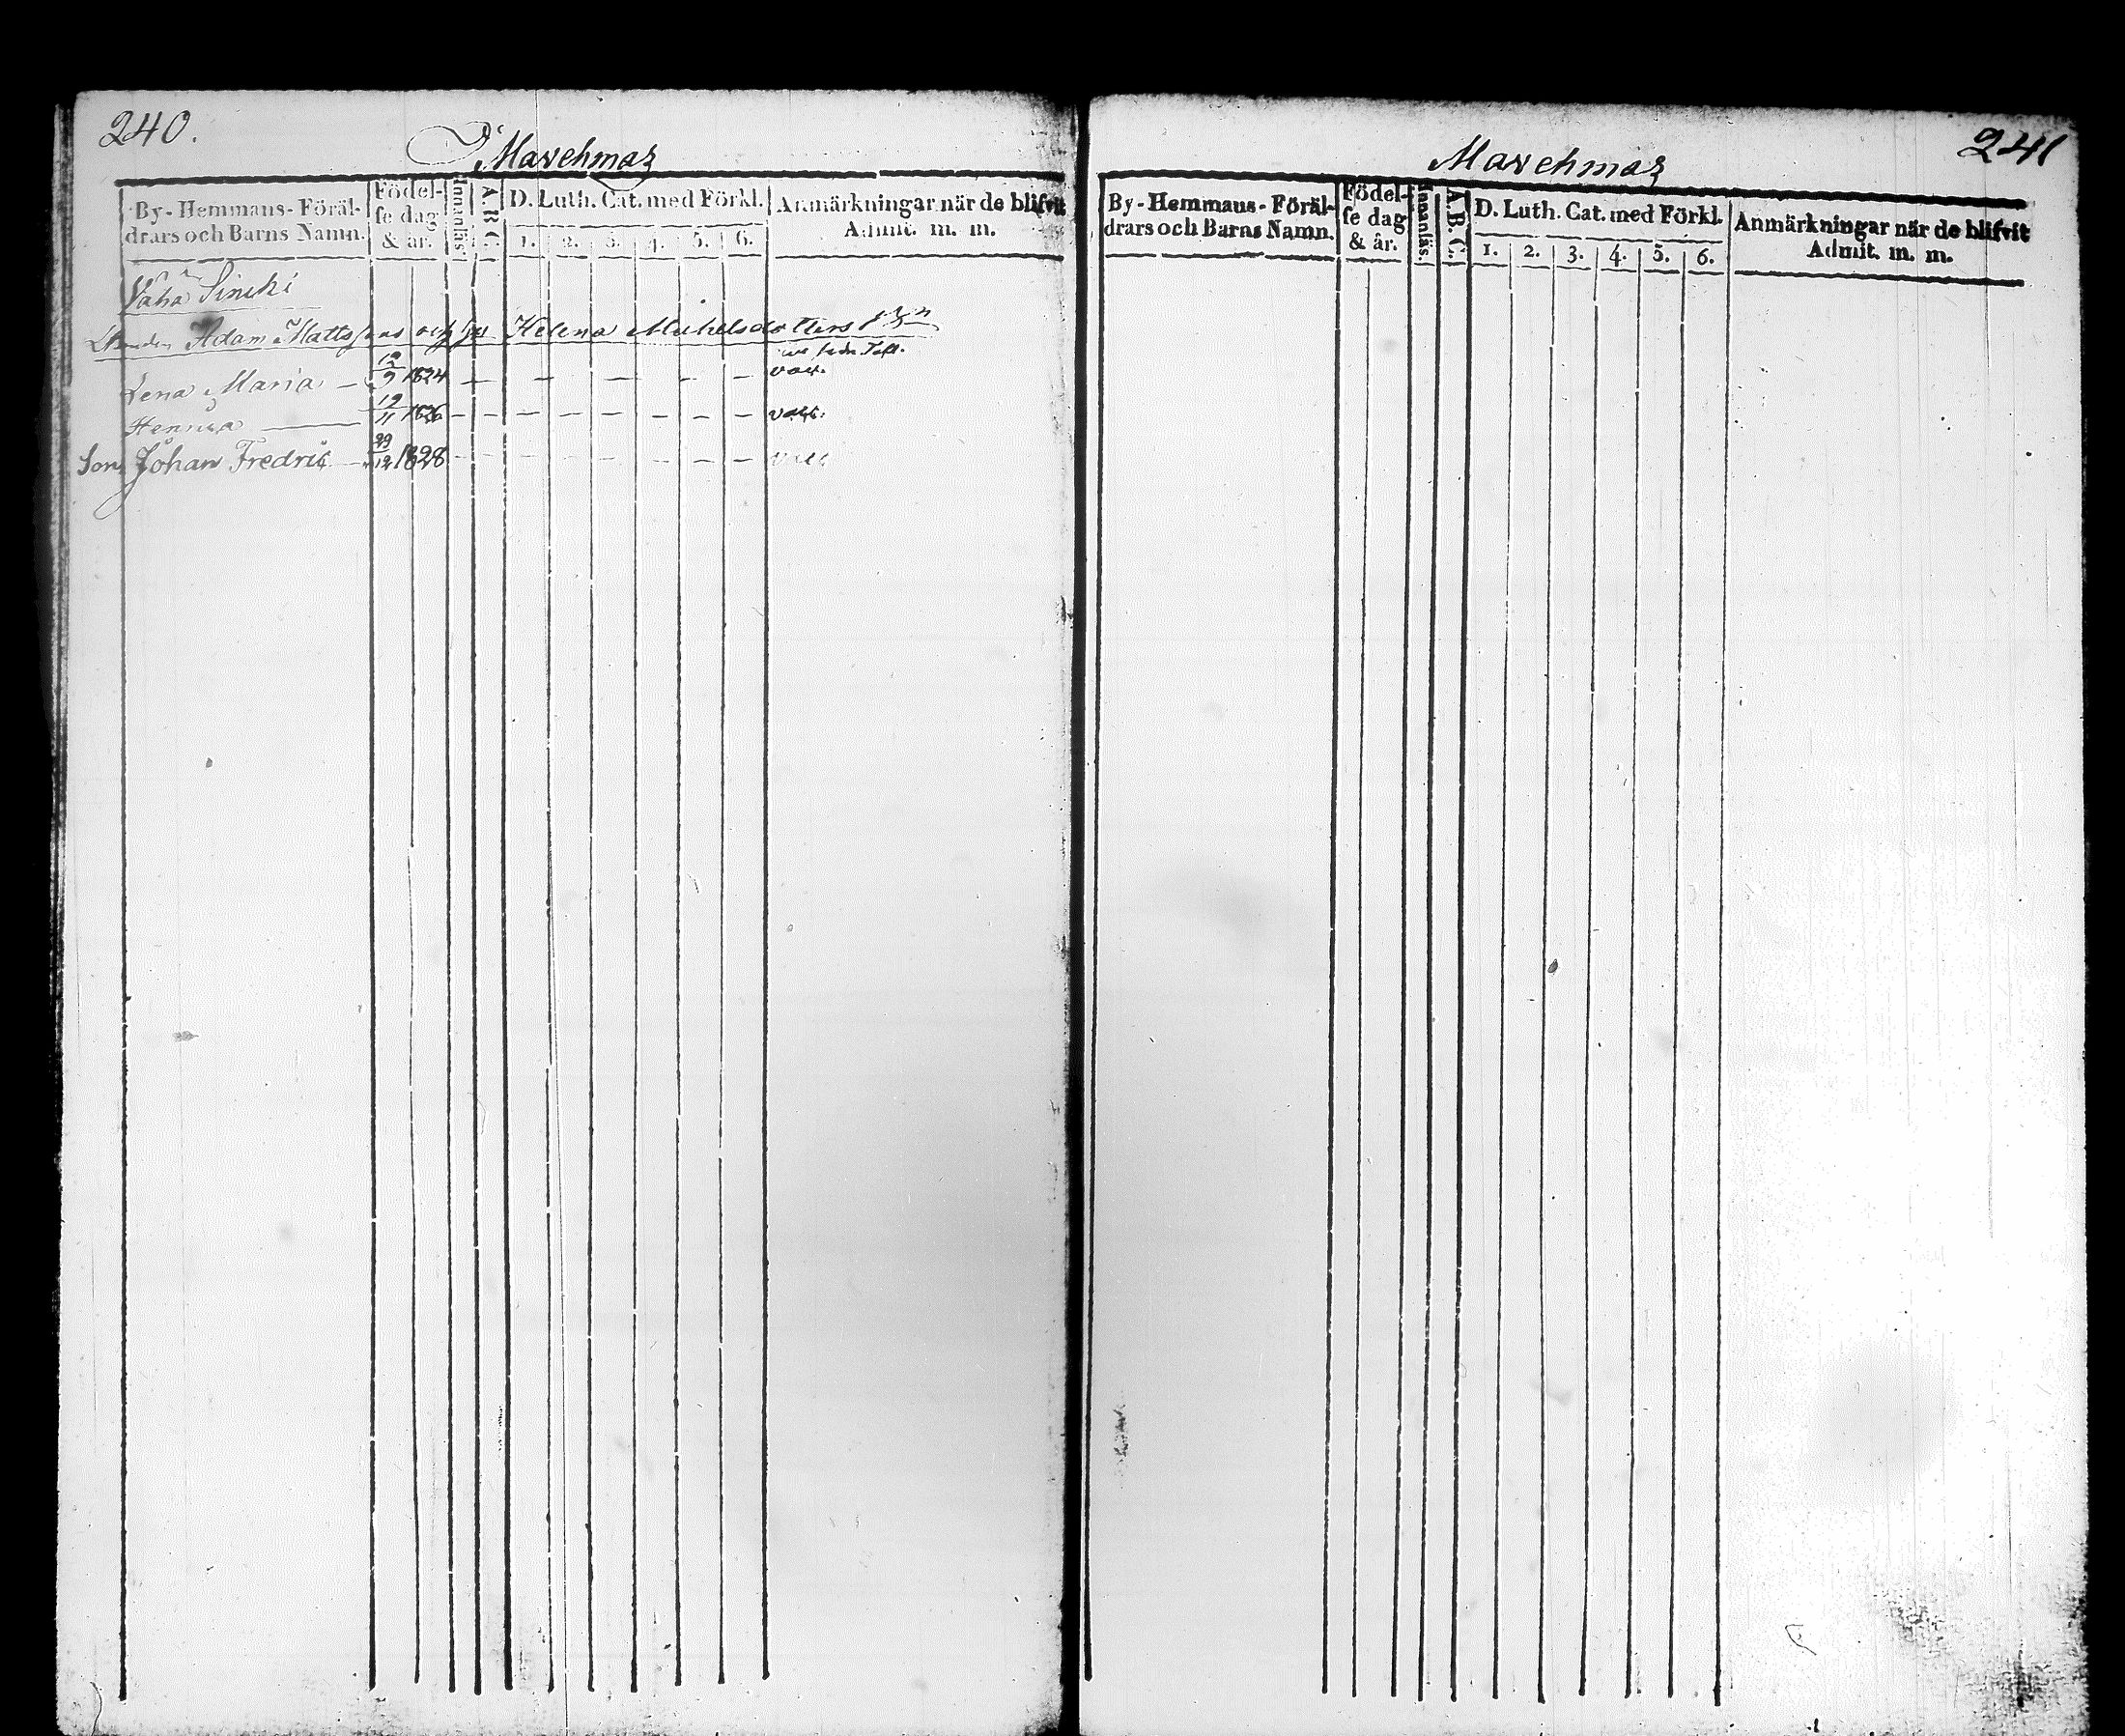 240.
Marchmaz
By-Hemmans-Föräl-
drars och Barns Namn.
Födel-
se dag
& år.
Innanläs.
A.B.C.
D. Luth. Cat. med Förkl.
1. 2. 3. 4. 5. 6.
Anmärkningar när de blifvit
Admit. m. m.
Vähä Sinchi
Adam Mattssons och Helena Michelsdotters
Lena Maria — 12/9 1824 — — — — —
Henrica — 19/11 1826 — — — — — — —
Son Johan Fredric — 29/12 1828 — — — — — — —
241
Marchmaz
By-Hemmans-Föräl-
drars och Barns Namn.
Födel-
se dag
& år.
Innanläs.
A.B.C.
D. Luth. Cat. med Förkl.
1. 2. 3. 4. 5. 6.
Anmärkningar när de blifvit
Admit. m. m.